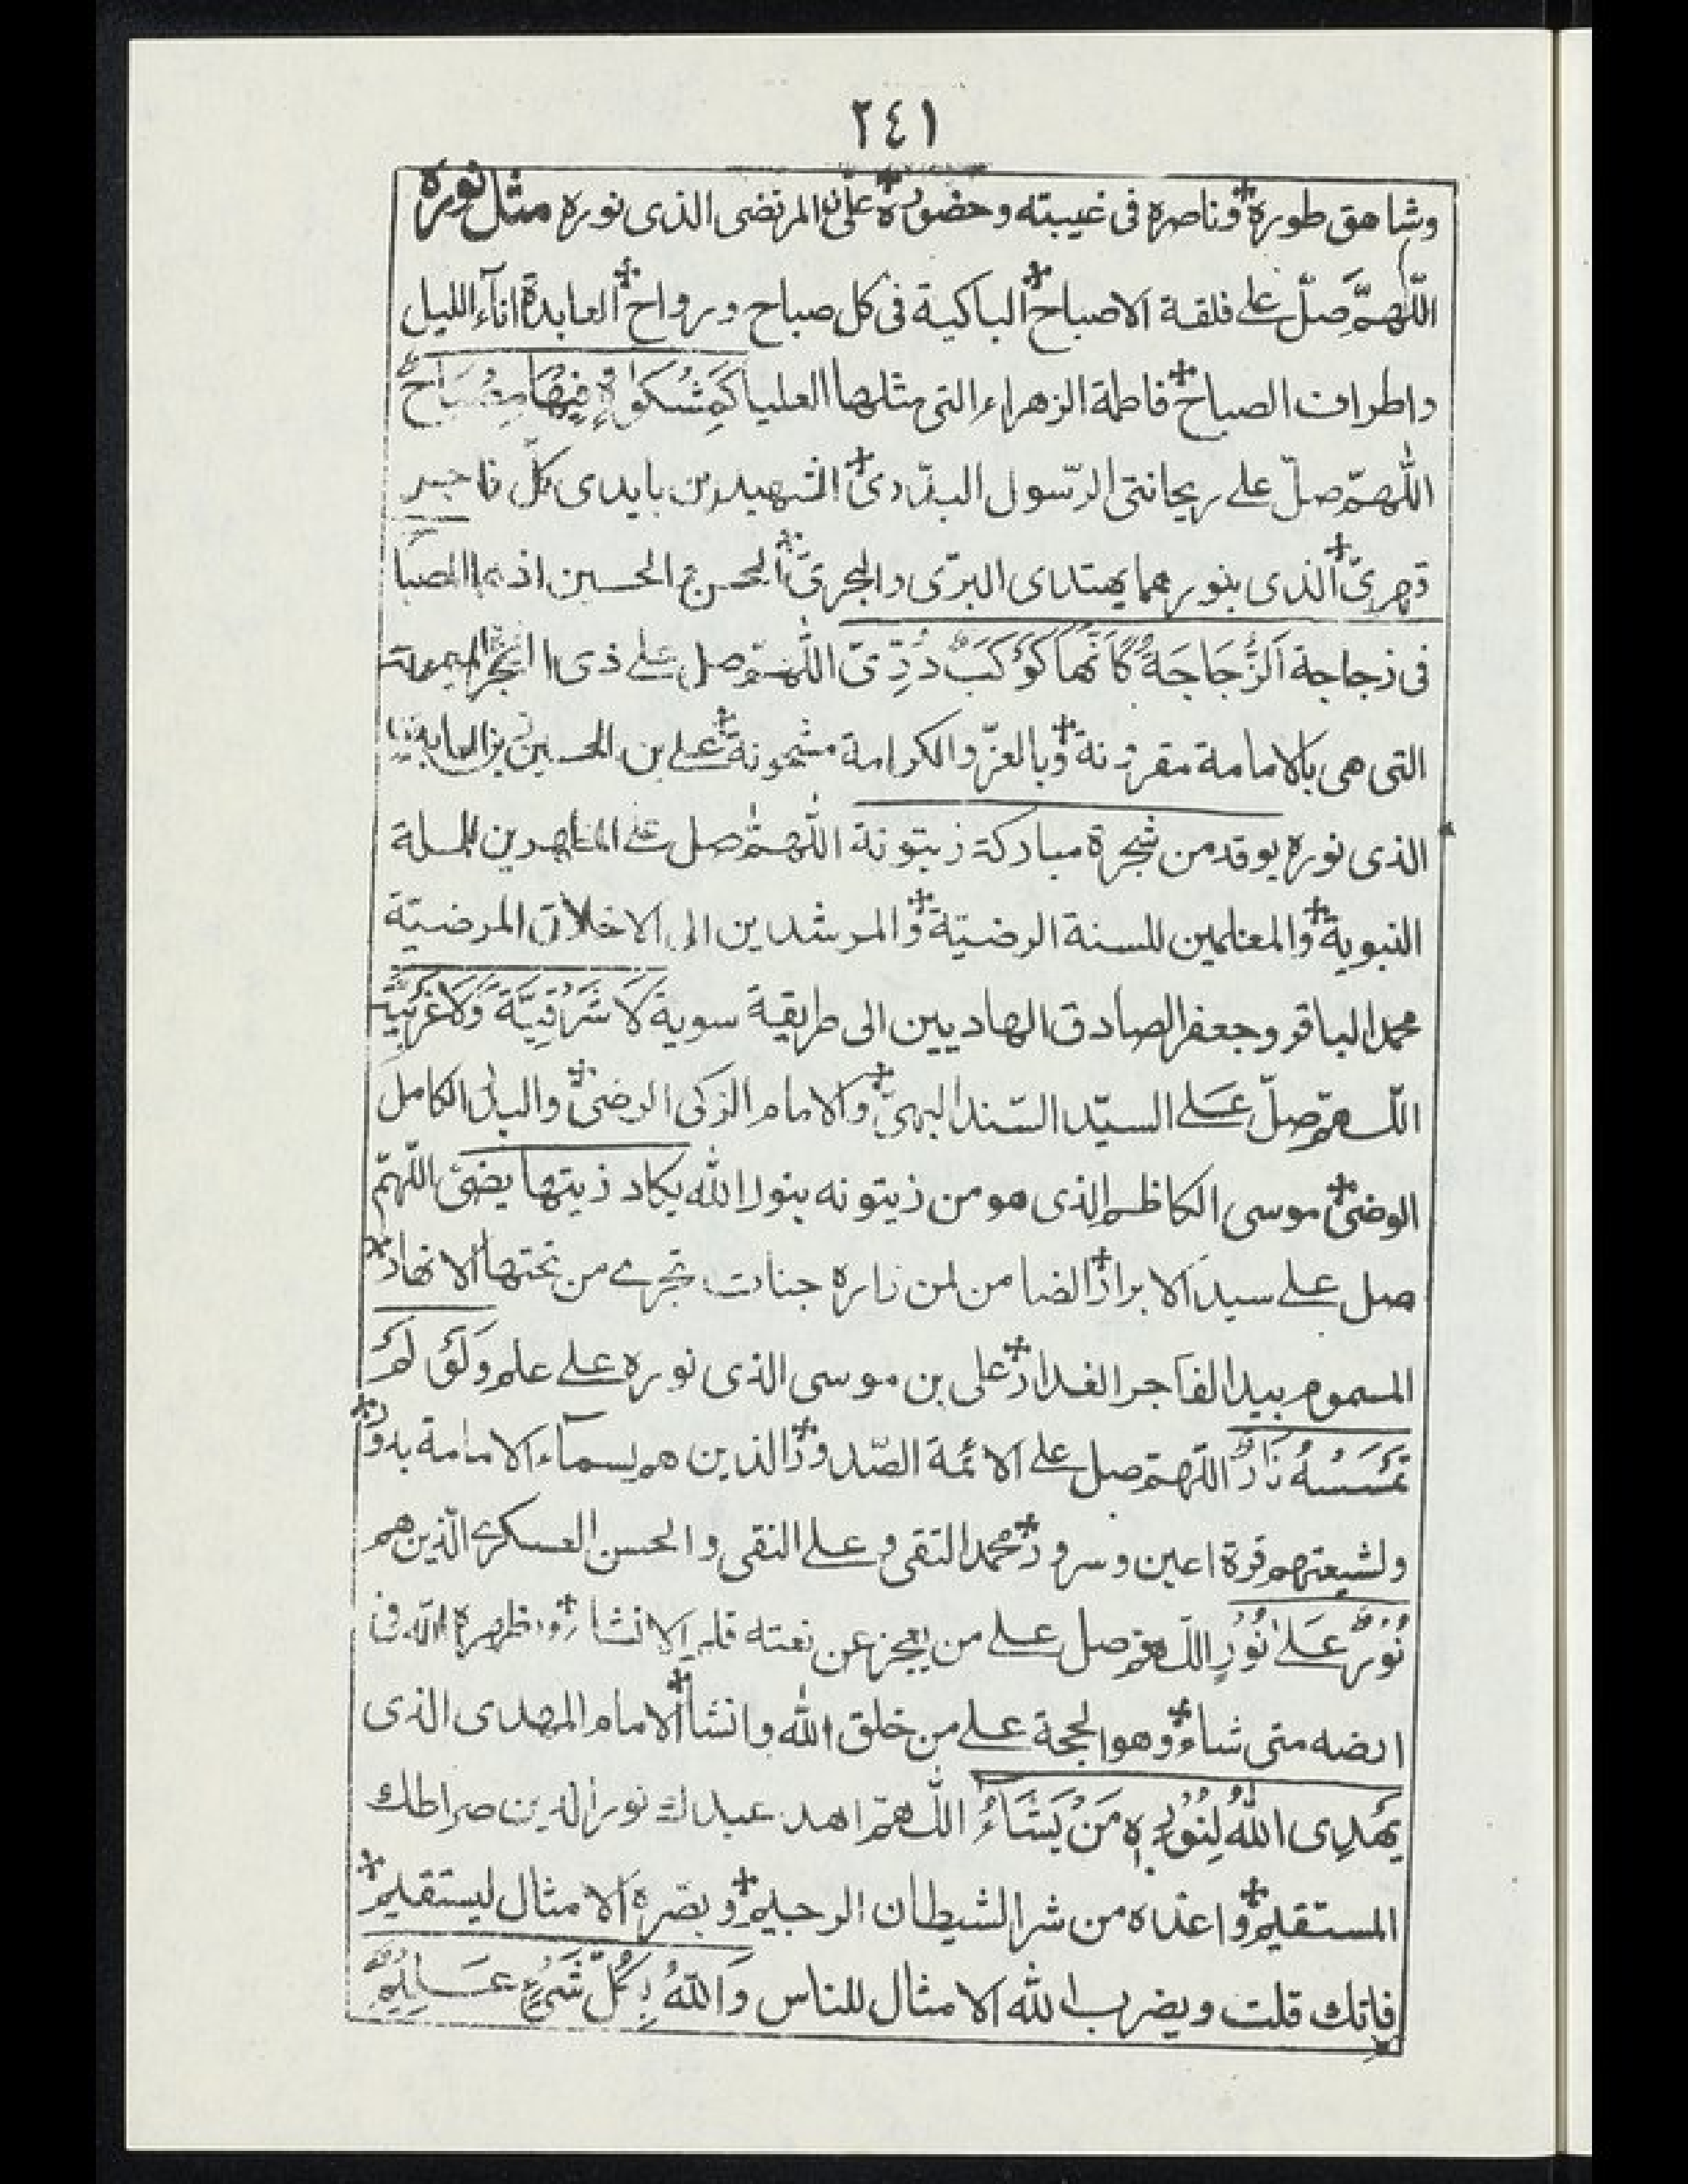 ٢٤١
وشاهق طوره وناصره فى غيبته وحضوره على المرتضى الذى نوره مثل نوره
اللّهمّ صلّ على فلقة الاصباح الباكية فى كل صباح ورواح العابدة اناء الليل
واطراف الصباح فاطمة الزهراء التى مثلها العليا كَمِشْكَوٰةٍ فِيْهَا مِصْبَاحٌ
اللّهمّ صلّ على ريحانتى الرّسول البدّرى الشهيدين بايدى كلّ فاجر
قهرى الذى بنورهما يهتدى البرّى والبحرىّ الحسن و الحسين اذهما المصبا
فى زجاجة اَلزُّجَاجَةُ كَاَنَّهَا كَوْكَبٌ دُرِّىّ اللّهمّ صل على ذى الشجر الميمونة
التى هى بالامامة مقرونة وبالعزّ والكرامة مشحونة على بن الحسين زين العابدين
الذى نوره يوقد من شجرة مباركة زيتونة اللّهمّ صل على الماهدين للملة
النبوية والمعلمين للسنة الرضيّة والمرشدين الى الاخلاق المرضيّة
محمد الباقر وجعفر الصادق الهاديين الى طريقة سوية لَا شَرْقِيَّةٍ وَّلَا غَرْبِيَّةٍ
اللّهمّ صلّ على السيّد السّند البهىّ والامام الزكى الرضىّ والبدر الكامل
الوضىّ موسى الكاظم الذى هو من زيتونه بنور الله يكاد زيتها يضئ اللّهمّ
صل على سيد الابرار الضامن لمن زاره جنات تجرى من تحتها الانهار
المسموم بيد الفاجر الغدار على بن موسى الذى نوره على علم وَلَوْ لَمْ
تَمْسَسْهُ نَارٌ اللّهمّ صل على الائمة الصّدور الذين هم لسماء الامامة بدور
ولشيعتهم قرة اعين وسرور محمد التقى وعلى النقى والحسن العسكرى الّذين هم
نُوْرٌ عَلٰى نُوْرٍ اللّهمّ صل على من يعجز عن نعته قلم الانشاء ويظهره الله فى
ارضه متى شاء وهو الحجة على من خلق الله وانشأ الامام المهدى الذى
يَهْدِى اللهُ لِنُوْرِهٖ مَنْ يَّشَآءُ اللّهمّ اهد عبدك نور الدين صراطك
المستقيم واعذه من شر الشيطان الرجيم وبصّره الامثال ليستقيم
فانك قلت ويضرب الله الامثال للناس وَاللّهُ بِكُلِّ شَىْءٍ عَلِيْمٌ